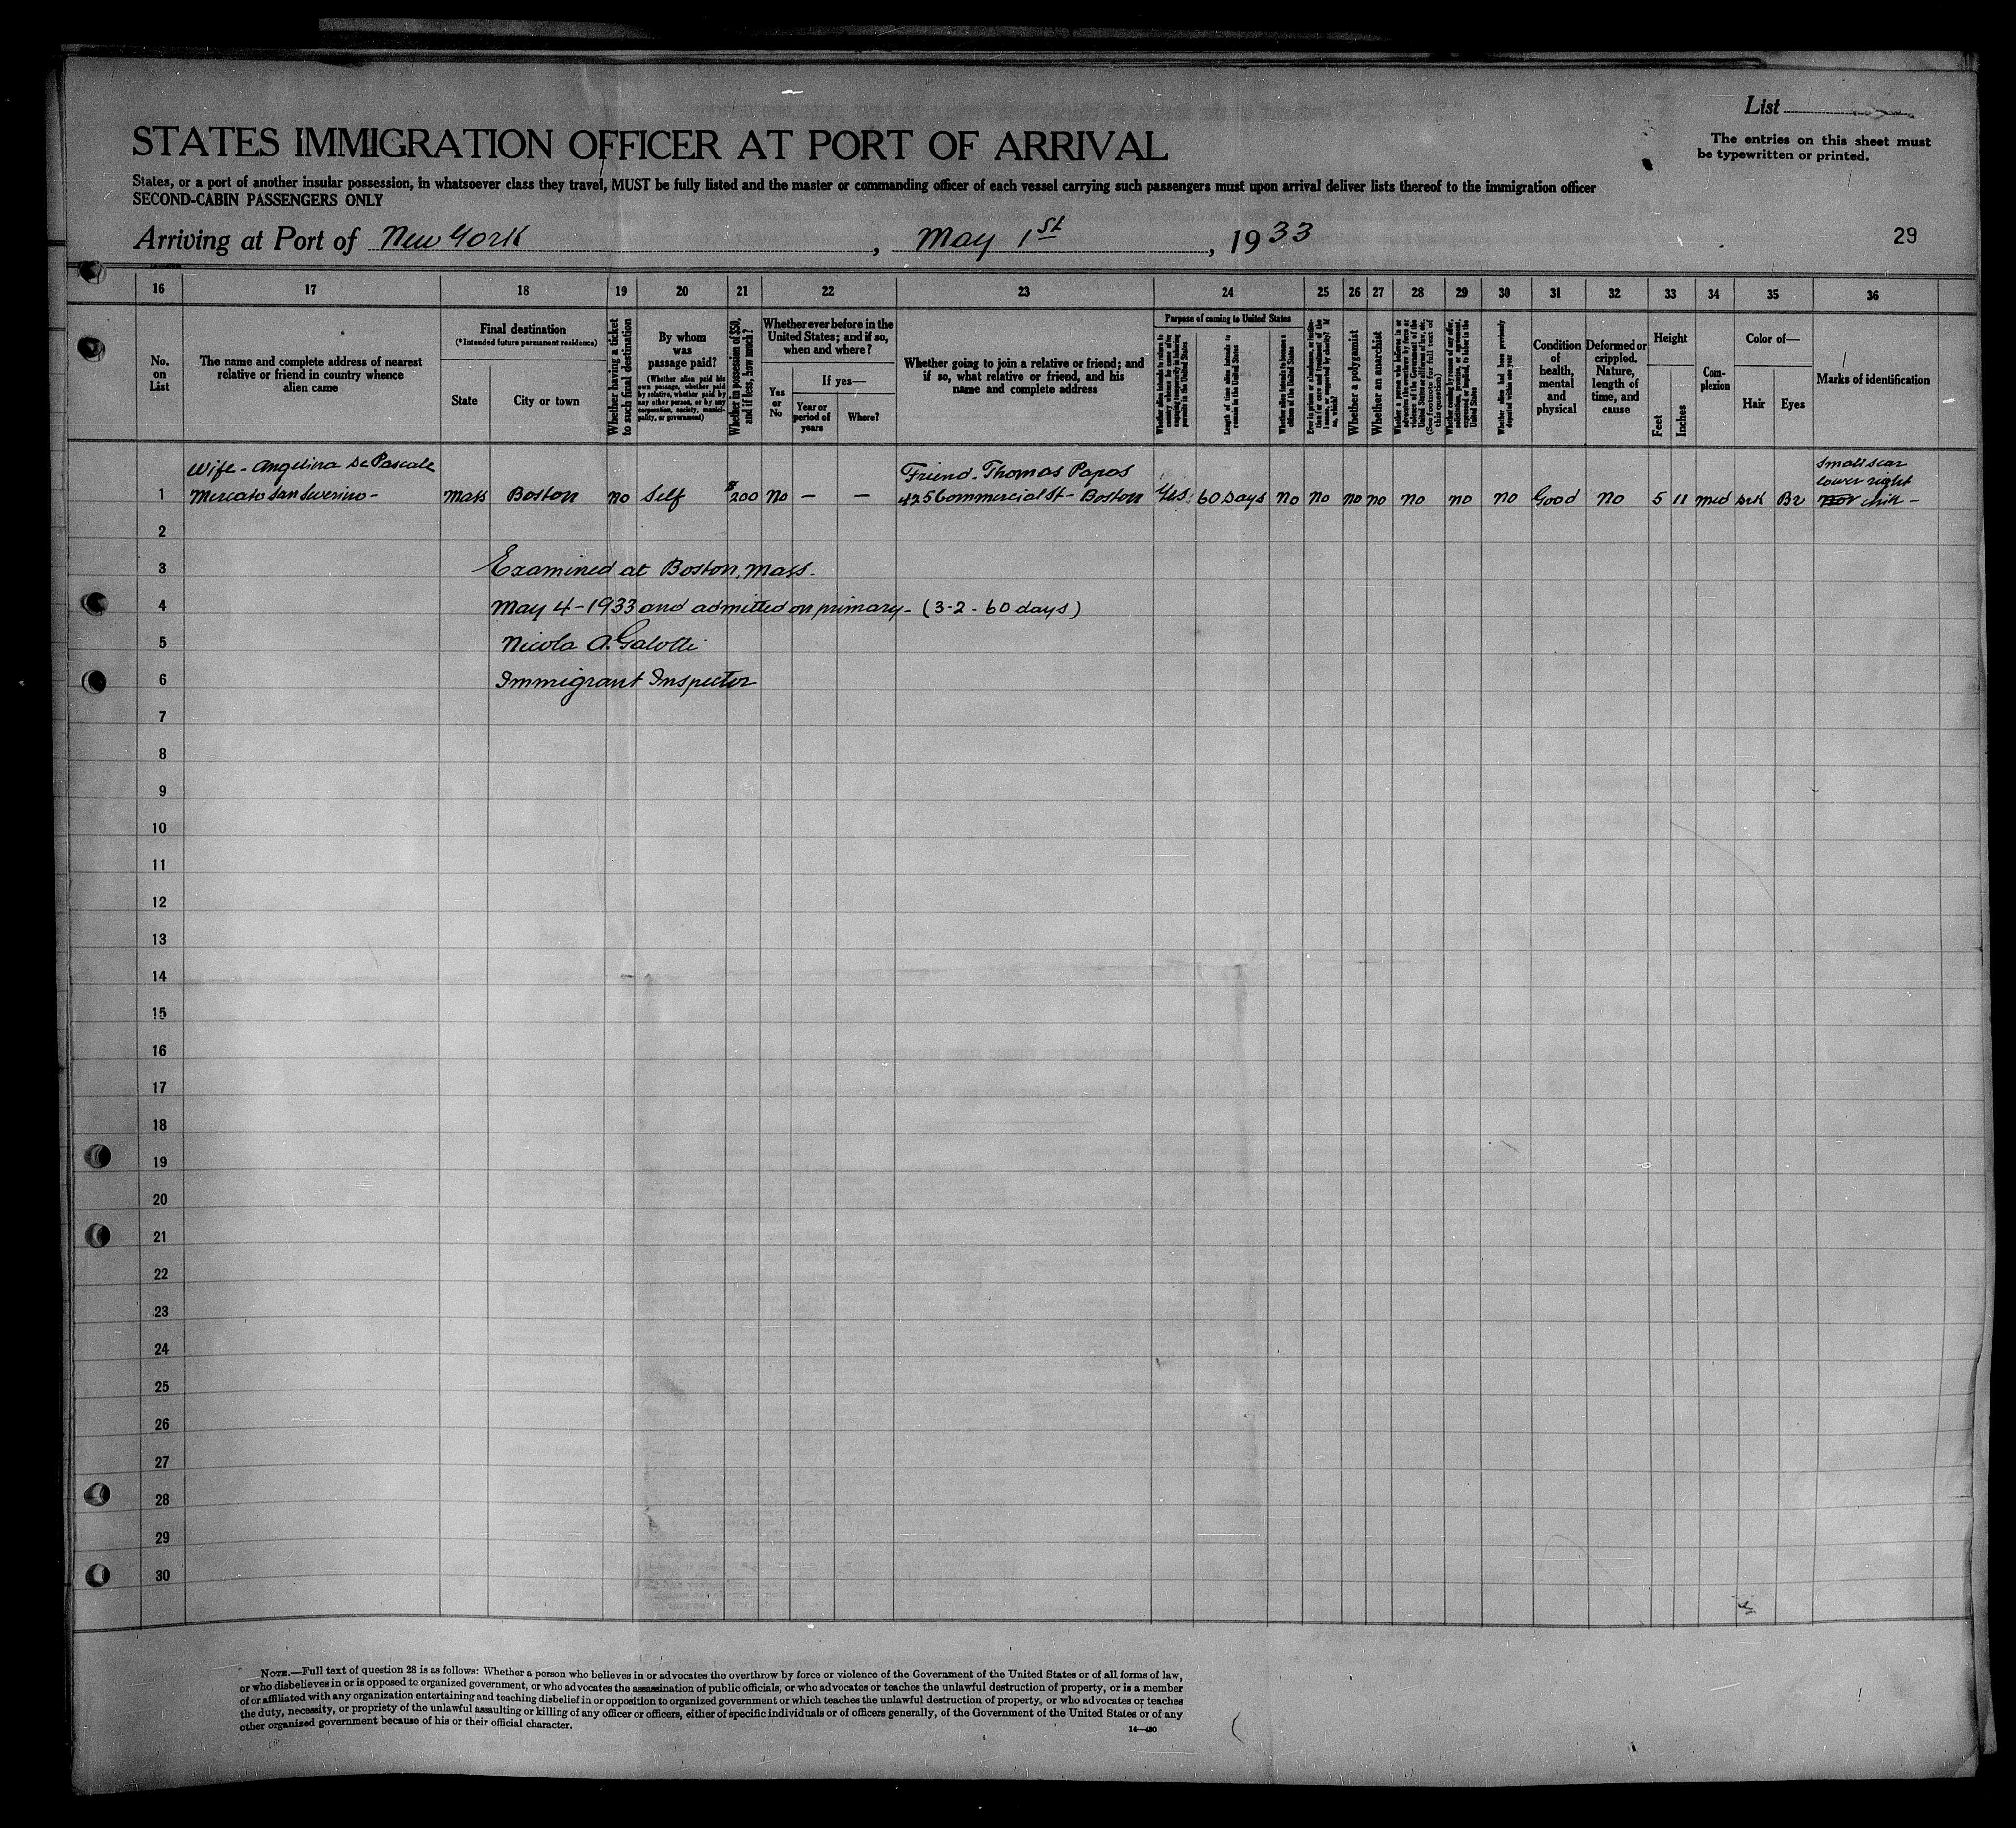 List
STATES IMMIGRATION OFFICER AT PORT OF ARRIVAL
The entries on this sheet must
be typewritten or printed.
States, or a port of another insular possession, in whatsoever class they travel, MUST be fully listed and the master or commanding officer of each vessel carrying such passengers must upon arrival deliver lists thereof to the immigration officer
SECOND-CABIN PASSENGERS ONLY
Arriving at Port of New York, May 1st, 1933
29
16 17 18 19 20 21 22 23 24 25 26 27 28 29 30 31 32 33 34 35 36
No.
on
List
The name and complete address of nearest
relative or friend in country whence
alien came
Final destination
(*Intended future permanent residence)
State
City or town
Whether having a ticket
to such final destination
By whom
was
passage paid?
(Whether alien paid his
own passage, whether paid
by relative, whether paid by
any other person, or by any
corporation, society, munici-
pality, or government)
Whether in possession of $50,
and if less, how much?
Whether ever before in the
United States; and if so,
when and where?
Yes
or
No
If yes—
Year or
period of
years
Where?
Whether going to join a relative or friend; and
if so, what relative or friend, and his
name and complete address
Purpose of coming to United States
Whether alien intends to return to
country whence he came after
engaging temporarily in laboring
pursuits in the United States
Length of time alien intends to
remain in the United States
Whether alien intends to become a
citizen of the United States
Ever in prison or almshouse, or institu-
tion for care and treatment of the
insane, or supported by charity? If
so, which?
Whether a polygamist
Whether an anarchist
Whether a person who believes in or
advocates the overthrow by force or
violence of the Government of the
United States or all forms of law, etc.
(See footnote for full text of
this question)
Whether coming by reason of any offer,
solicitation, promise, or agreement,
expressed or implied, to labor in the
United States
Whether alien had been previously
deported within one year
Condition
of
health,
mental
and
physical
Deformed or
crippled.
Nature,
length of
time, and
cause
Height
Feet
Inches
Com-
plexion
Color of—
Hair
Eyes
Marks of identification
Wife - Angelina De Pascale
Friend. Thomas Papas
Small scar
lower right
1 Mercato San Severino - Mass Boston no Self $200 No — — 425 Commercial St - Boston Yes 60 Days No No No No No No No Good No 5 11 Med Drk Br chin -
2
3 Examined at Boston, Mass.
4 May 4-1933 and admitted on primary - (3-2 - 60 days)
5 Nicola A. Galotti
6 Immigrant Inspector
7
8
9
10
11
12
13
14
15
16
17
18
19
20
21
22
23
24
25
26
27
28
29
30
NOTE.—Full text of question 28 is as follows: Whether a person who believes in or advocates the overthrow by force or violence of the Government of the United States or of all forms of law,
or who disbelieves in or is opposed to organized government, or who advocates the assassination of public officials, or who advocates or teaches the unlawful destruction of property, or is a member
of or affiliated with any organization entertaining and teaching disbelief in or opposition to organized government or which teaches the unlawful destruction of property, or who advocates or teaches
the duty, necessity, or propriety of the unlawful assaulting or killing of any officer or officers, either of specific individuals or of officers generally, of the Government of the United States or of any
other organized government because of his or their official character.
14—480